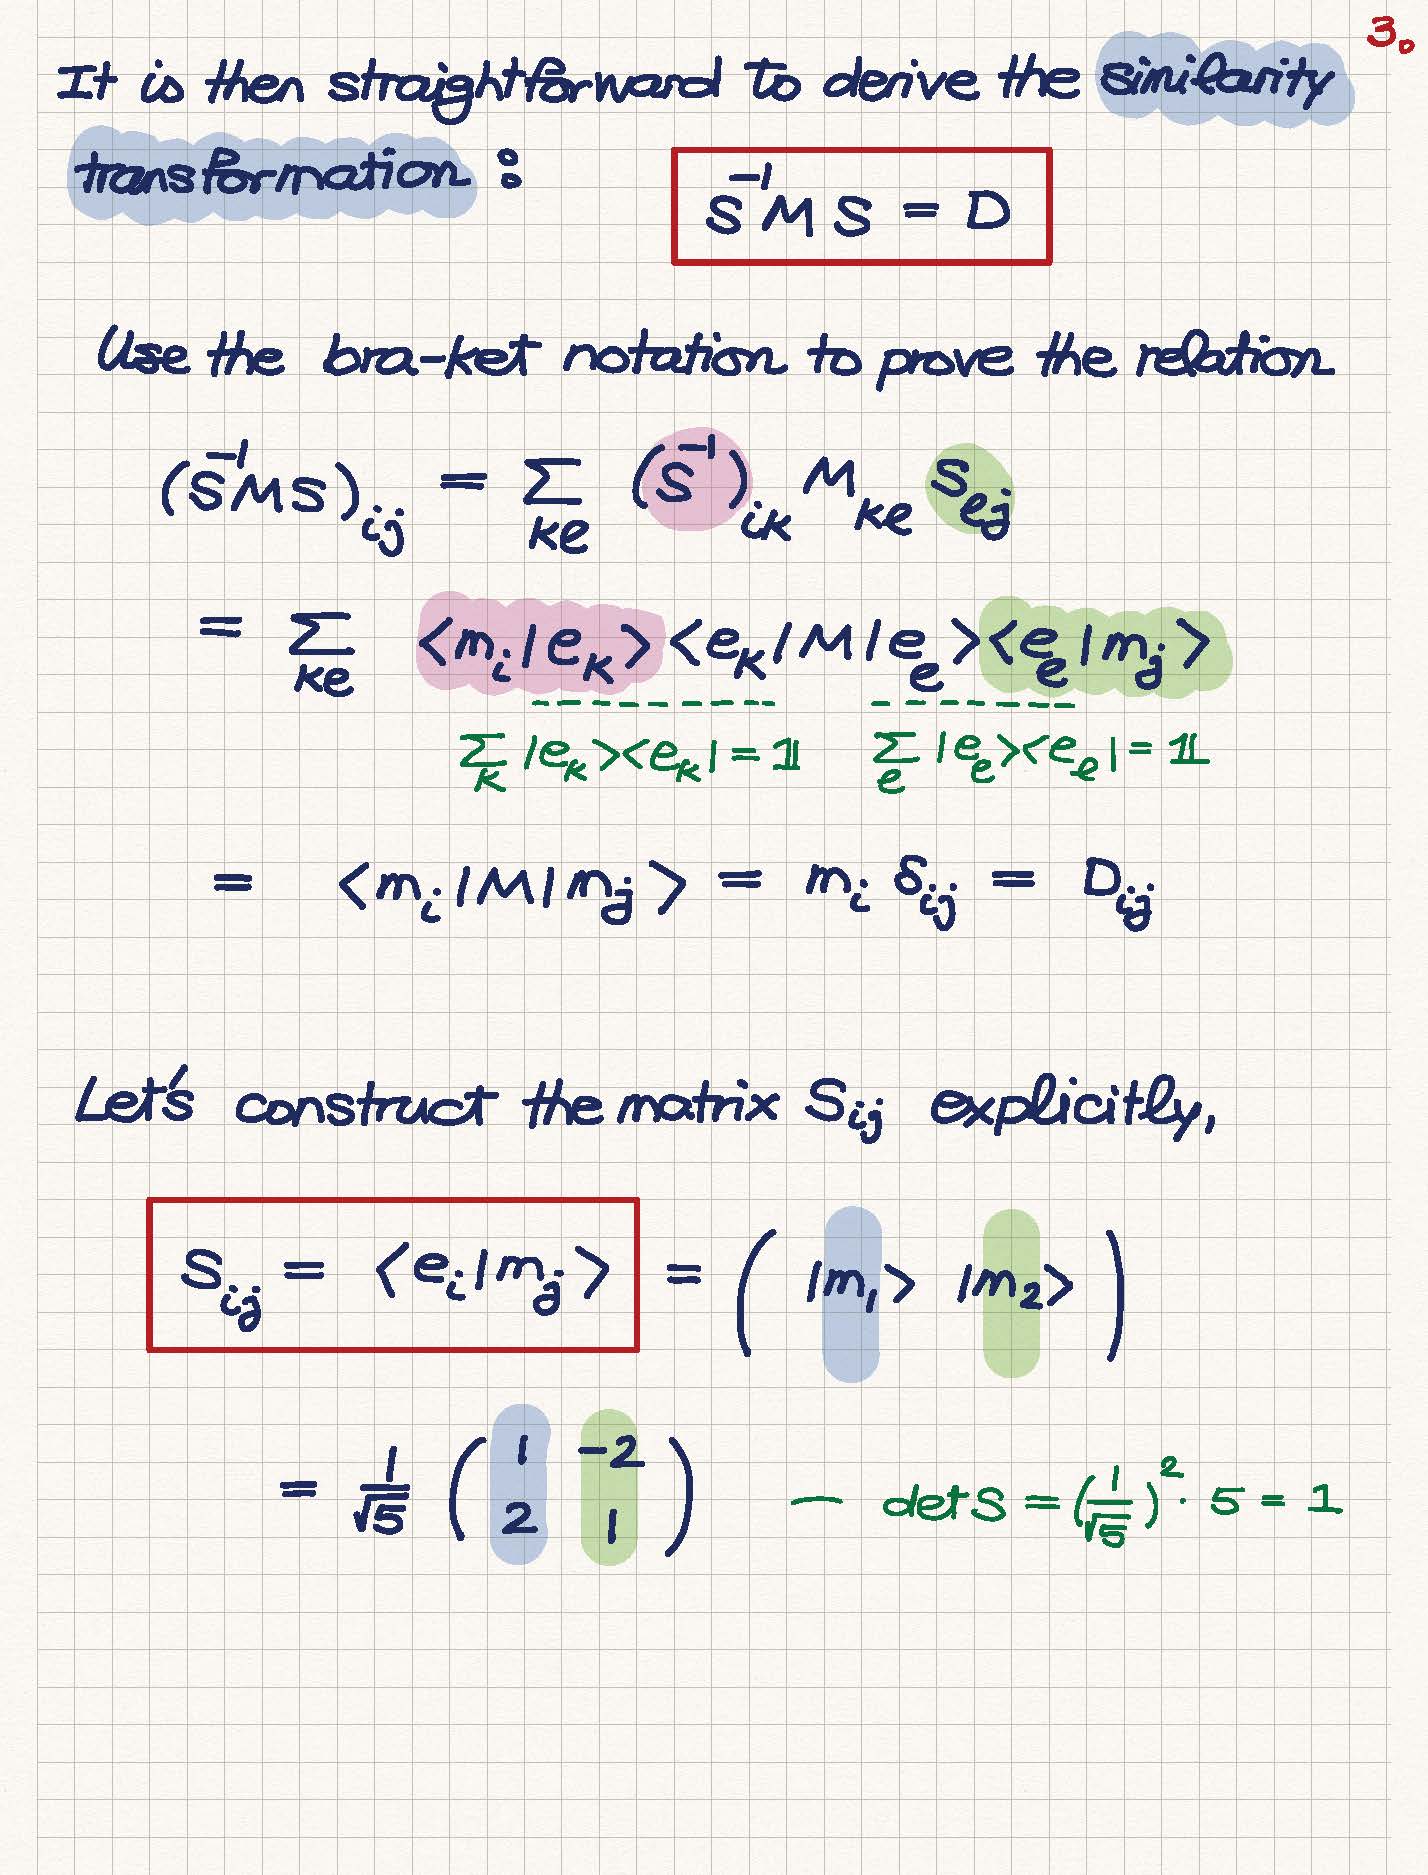 3.
It is then straightforward to derive the similarity
transformation :
S⁻¹MS = D
Use the bra-ket notation to prove the relation
(S⁻¹MS)_ij = Σ_kℓ (S⁻¹)_ik M_kℓ S_ℓj
= Σ_kℓ <m_i|e_k><e_k|M|e_ℓ><e_ℓ|m_j>
Σ_k |e_k><e_k| = 𝟙 Σ_ℓ |e_ℓ><e_ℓ| = 𝟙
= <m_i|M|m_j> = m_i δ_ij = D_ij
Let's construct the matrix S_ij explicitly,
S_ij = <e_i|m_j> = ( |m_1> |m_2> )
= 1/√5 ( 1 -2
2 1 ) — det S = (1/√5)² · 5 = 1